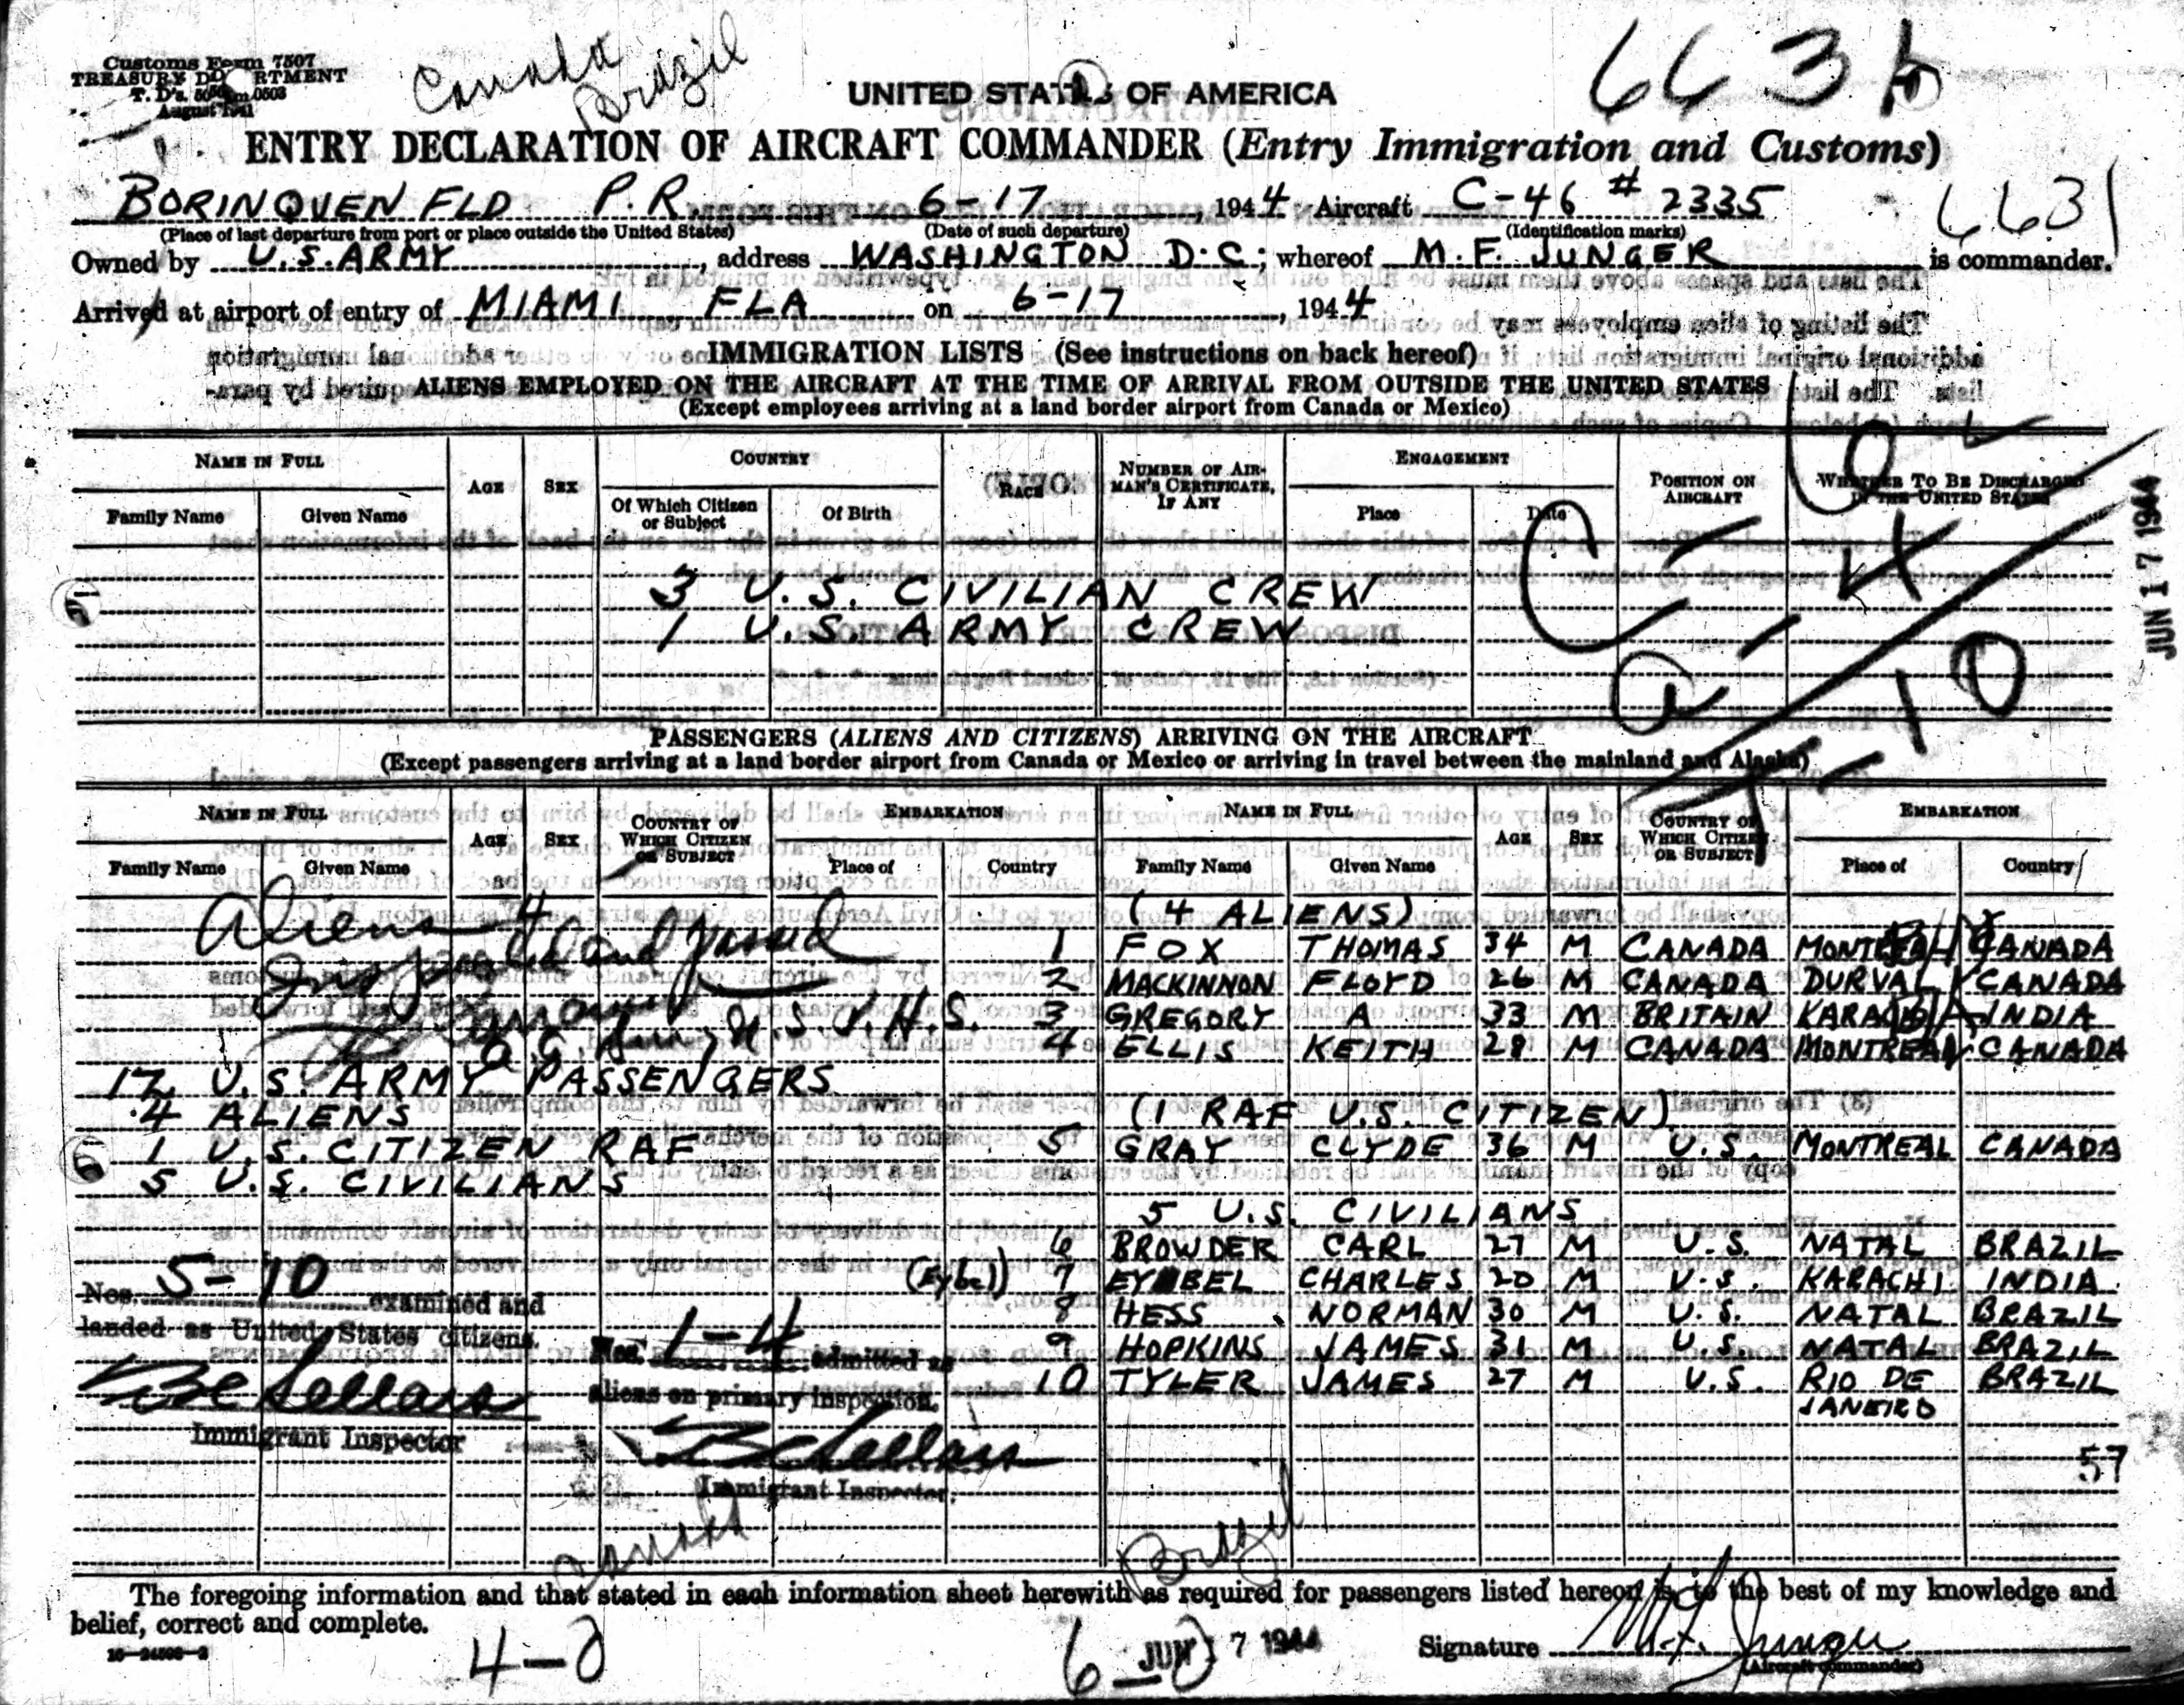 Customs Form 7507
TREASURY DEPARTMENT
August 1941
Canada
Brazil
UNITED STATES OF AMERICA
663
ENTRY DECLARATION OF AIRCRAFT COMMANDER (Entry Immigration and Customs)
BORINQUEN FLD P.R. 6-17, 1944 Aircraft C-46 # 2335
6631
(Place of last departure from port or place outside the United States) (Date of such departure) (Identification marks)
Owned by U.S. ARMY, address WASHINGTON D.C; whereof M.F. JUNGER is commander.
Arrived at airport of entry of MIAMI FLA on 6-17, 1944
IMMIGRATION LISTS (See instructions on back hereof)
ALIENS EMPLOYED ON THE AIRCRAFT AT THE TIME OF ARRIVAL FROM OUTSIDE THE UNITED STATES
(Except employees arriving at a land border airport from Canada or Mexico)
NAME IN FULL AGE SEX COUNTRY RACE NUMBER OF AIRMAN'S CERTIFICATE, IF ANY ENGAGEMENT POSITION ON AIRCRAFT WHETHER TO BE DISCHARGED IN THE UNITED STATES
Family Name Given Name Of Which Citizen or Subject Of Birth Place Date
JUN 17 1944
5
3 U.S. CIVILIAN CREW
1 U.S. ARMY CREW
C-4
a-10
PASSENGERS (ALIENS AND CITIZENS) ARRIVING ON THE AIRCRAFT
(Except passengers arriving at a land border airport from Canada or Mexico or arriving in travel between the mainland and Alaska)
NAME IN FULL AGE SEX COUNTRY OF WHICH CITIZEN OR SUBJECT EMBARKATION NAME IN FULL AGE SEX COUNTRY OF WHICH CITIZEN OR SUBJECT EMBARKATION
Family Name Given Name Place of Country Family Name Given Name Place of Country
Aliens 4
Inspected and passed
U.S.P.H.S.
17 U.S. ARMY PASSENGERS
4 ALIENS
6 1 U.S. CITIZEN RAF
5 U.S. CIVILIANS
(4 ALIENS)
1 FOX THOMAS 34 M CANADA MONTREAL CANADA
2 MACKINNON FLOYD 26 M CANADA DURVAL CANADA
3 GREGORY A 33 M BRITAIN KARACHI INDIA
4 ELLIS KEITH 28 M CANADA MONTREAL CANADA
(1 RAF U.S. CITIZEN)
5 GRAY CLYDE 36 M U.S. MONTREAL CANADA
5 U.S. CIVILIANS
6 BROWDER CARL 27 M U.S. NATAL BRAZIL
(Eybel) 7 EYBEL CHARLES 20 M U.S. KARACHI INDIA
8 HESS NORMAN 30 M U.S. NATAL BRAZIL
9 HOPKINS JAMES 31 M U.S. NATAL BRAZIL
10 TYLER JAMES 27 M U.S. RIO DE JANEIRO BRAZIL
Nos. 5-10 examined and
landed as United States citizens.
BC Sellars
Immigrant Inspector
Nos. 1-4 admitted as
aliens on primary inspection.
BC Sellars
Immigrant Inspector.
57
Canada
Brazil
The foregoing information and that stated in each information sheet herewith as required for passengers listed hereon is to the best of my knowledge and
belief, correct and complete.
4-0
6-0
JUN 17 1944
Signature M.F. Junger
(Aircraft commander)